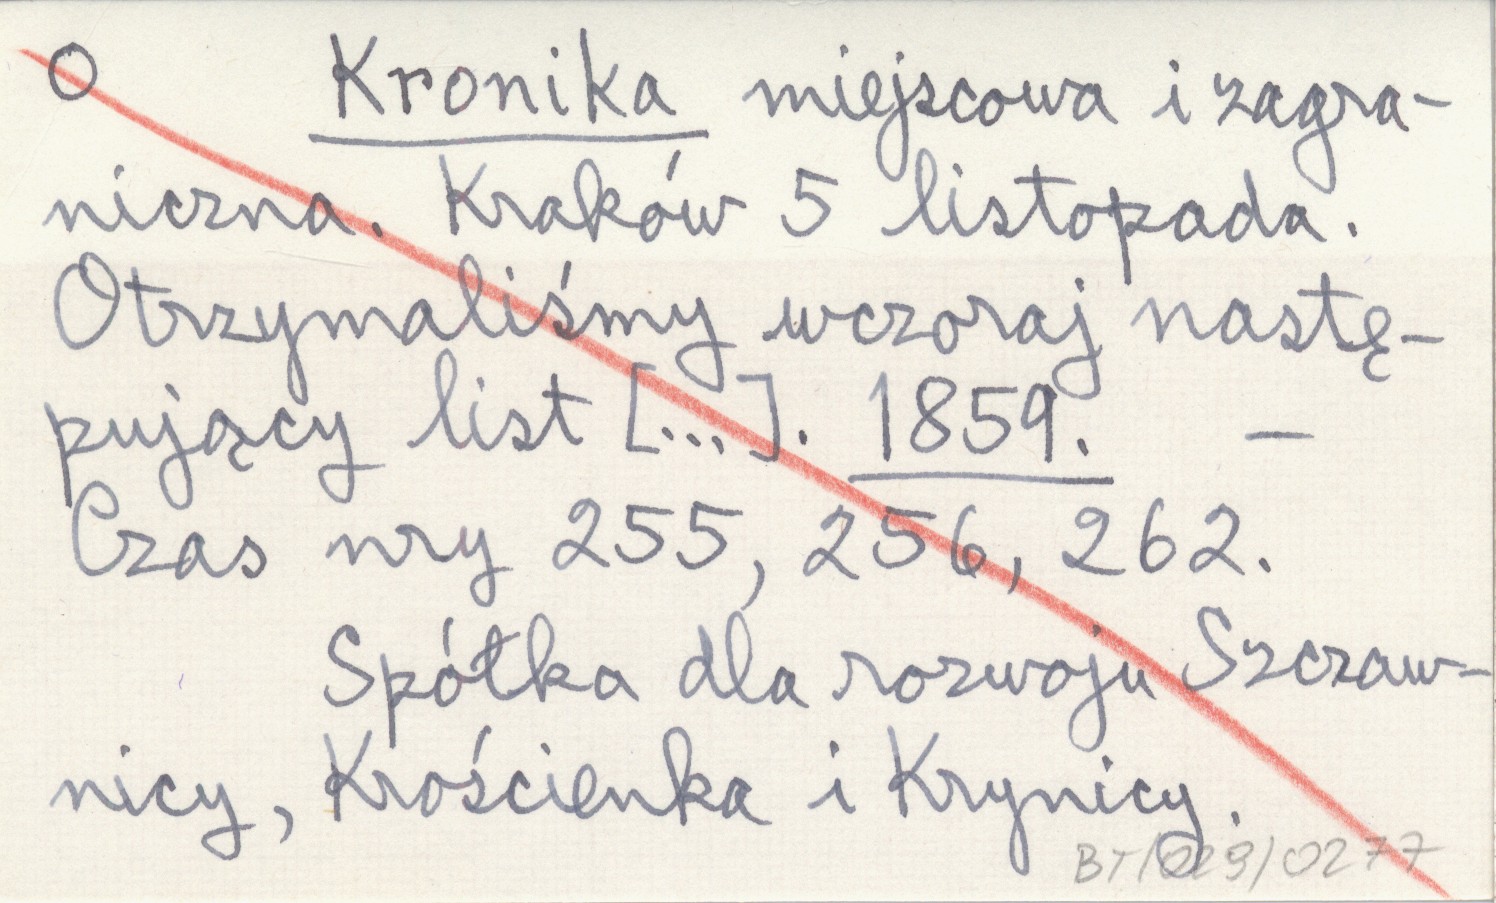 O Kronika miejscowa i zagra-
niczna. Kraków 5 listopada.
Otrzymaliśmy wczoraj nastę-
pujący list [...]. 1859. –
Czas nry 255, 256, 262.
Spółka dla rozwoju Szczaw-
nicy, Krościenka i Krynicy.
BT/029/0277